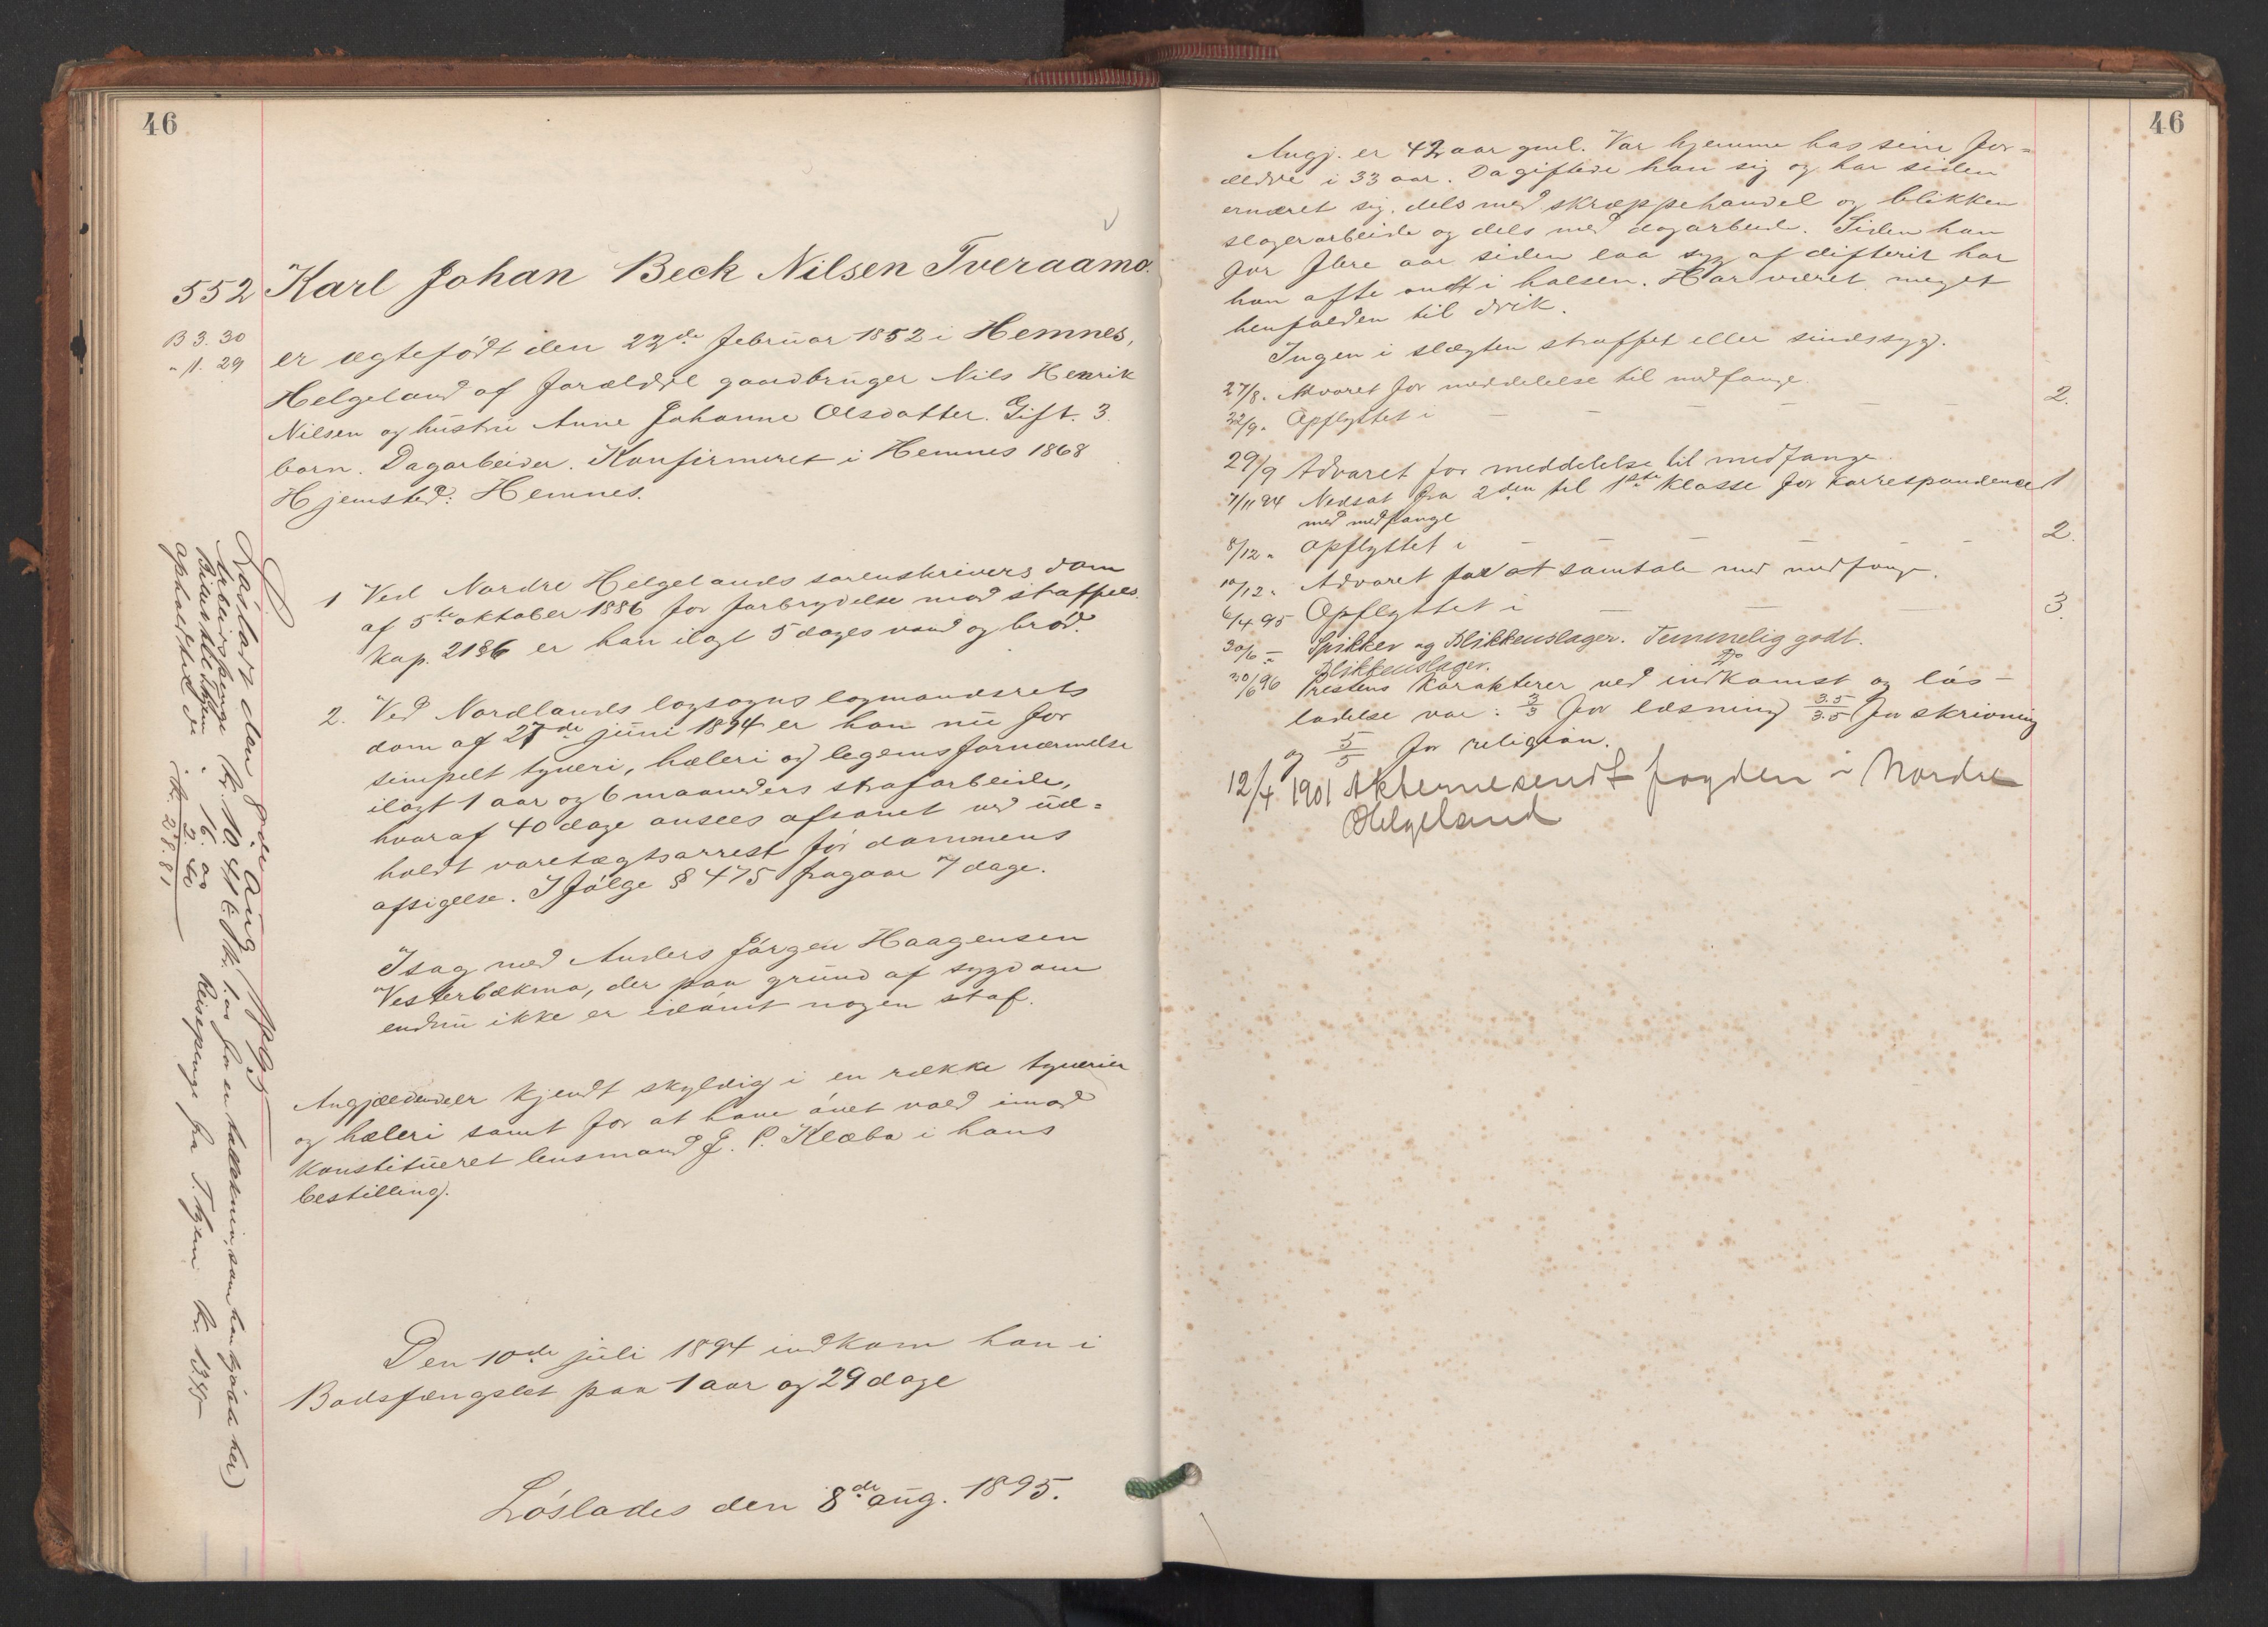 46
552 Karl Johan Beck Nilsen Tveraamo.
B 3. 30
" 1. 29
er ægtefødt den 22de februar 1852 i Hemnes,
Helgeland af forældre gaardbruger Nils Henrik
Nilsen og hustru Anne Johanne Olsdatter. Gift. 3
børn. Dagarbeider. Konfirmeret i Hemnes 1868
Hjemsted: Hemnes.
1 Ved Nordre Helgelands sorenskrivers dom
af 5te oktober 1886 for forbrydelse mod straffels.
kap. 21 § 6 er han ilagt 5 dages vand og brød.
2. Ved Nordlands lagsogns lagmandsrets
dom af 27de juni 1894 er han nu for
simpelt tyveri, hæleri og legemsfornærmelse
ilagt 1 aar og 6 maaneders strafarbeide,
hvoraf 40 dage ansees afsonet ved ud-
holdt varetægtsarrest før dommens
afsigelse. Ifølge § 475 fragaar 7 dage.
I sag med Anders Jørgen Haagensen
Vesterbækmo, der paa grund af sygdom
endnu ikke er idømt nogen staf.
Angjældende er kjendt skyldig i en række tyverier
og hæleri samt for at have øvet vold imod
konstitueret lensmand J. P. Klæbo i hans
bestilling.
Den 10de juli 1894 indkom han i
Bodsfængslet paa 1 aar og 29 dage
Løslades den 8de aug. 1895.
Løsladt den 8de Aug
Arbeidspenge kr. 10.41 kr. 1.00 for en som han kjøbte her)
Billet til Thjem " 16.00
ophold " 2.40
kr. 28.81
Reisepenge fra T.hjem kr. 13.45
46
Angj. er 42 aar gml. Var hjemme hos sine for-
ældre i 33 aar. Da giftede han sig og har siden
ernæret sig dels med skræppehandel og blikken
slagerarbeide og dels med dagarbeide. Siden han
for flere aar siden laa syg af difterit har
han ofte ondt i halsen. Har været meget
henfalden til drik.
Ingen i slægten straffet eller sindssyg.
27/8. Advaret for meddelelse til medfange.
22/9. Opflyttet i — — — — — — 2.
29/9 Advaret for meddelelse til medfange.
7/11 94 Nedsat fra 2den til 1ste klasse for korrespondence 1
med medfange
8/12 " opflyttet i — — — — — 2.
10/12 " Advaret for at samtale med medfange.
6/4 95 Opflyttet i — — — 3.
30/6 " Spikker og Blikkenslager. Temmelig godt.
30/6 96 Blikkenslager. Do
Prestens karakterer ved indkomst og løs-
ladelse var: 3/3 for læsning 3.5/3.5 for skrivning
og 5/5 for religion.
12/4 1901 Akterne sendt fogden i Nordre
Helgeland